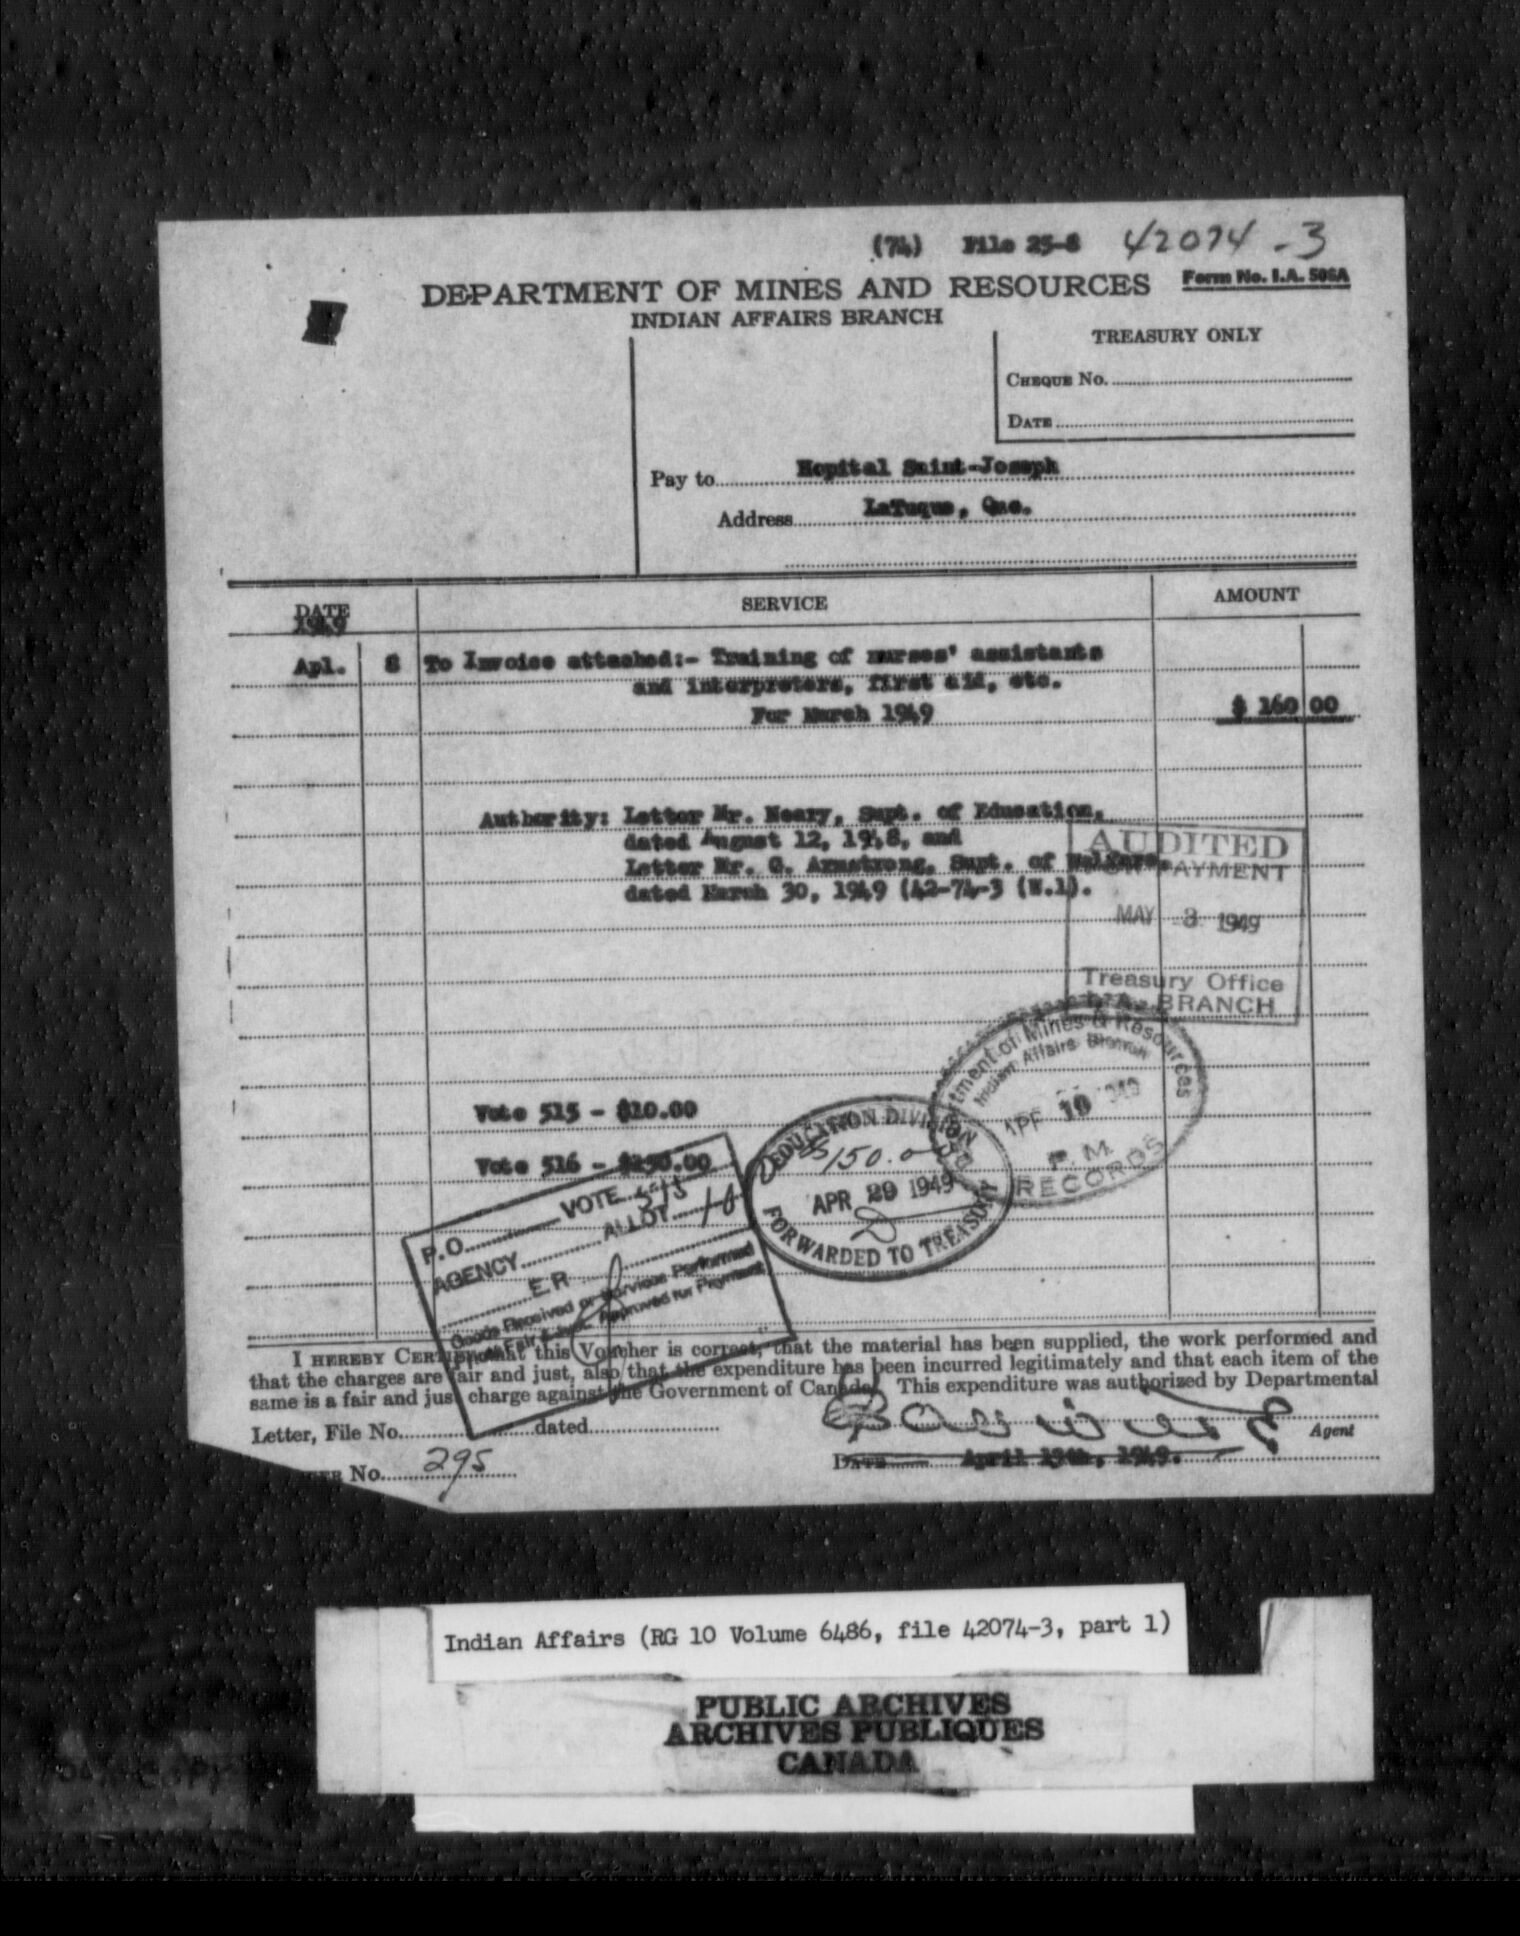 (74) File 25-8 42074-3
Form No. I.A. 505A
DEPARTMENT OF MINES AND RESOURCES
INDIAN AFFAIRS BRANCH
TREASURY ONLY
CHEQUE No.
DATE
Pay to Hopital Saint-Joseph
Address LaTuque, Que.
DATE SERVICE AMOUNT
1949
Apl. 8 To Invoice attached:- Training of nurses' assistants
and interpreters, first aid, etc.
For March 1949 $ 160 00
Authority: Letter Mr. Neary, Supt. of Education,
dated August 12, 1948, and
Letter Mr. G. Armstrong, Supt. of Welfare,
dated March 30, 1949 (42-74-3 (W.1).
AUDITED
FOR PAYMENT
MAY 3 1949
Treasury Office
I.A. BRANCH
Department of Mines & Resources
Indian Affairs Branch
APR 19 1949
P.M.
RECORDS
Vote 515 - $10.00
Vote 516 - $150.00
EDUCATION DIVISION
150.00
APR 29 1949
FORWARDED TO TREASURY
P.O. VOTE 515
AGENCY ALLOT 10
E.R.
Goods Received or Services Performed
Prices Fair & Just. Approved for Payment
I HEREBY CERTIFY that this Voucher is correct, that the material has been supplied, the work performed and
that the charges are fair and just, also that the expenditure has been incurred legitimately and that each item of the
same is a fair and just charge against the Government of Canada. This expenditure was authorized by Departmental
Letter, File No. dated
Agent
No. 295
DATE April 19th, 1949.
Indian Affairs (RG 10 Volume 6486, file 42074-3, part 1)
PUBLIC ARCHIVES
ARCHIVES PUBLIQUES
CANADA